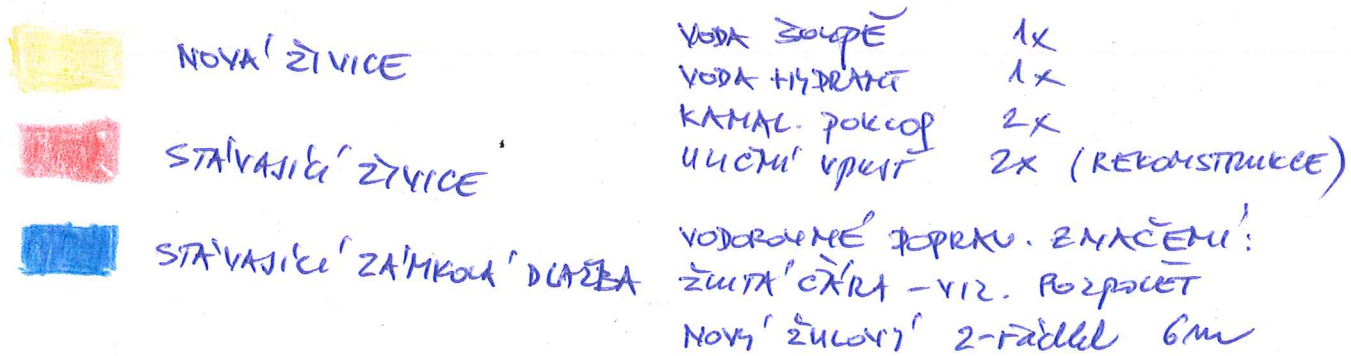 NOVÁ ŽIVICE
STÁVAJÍCÍ ŽIVICE
STÁVAJÍCÍ ZÁMKOVÁ DLAŽBA
VODA ŠOUPĚ 1x
VODA HYDRANT 1x
KANAL. POKLOP 2x
ULIČNÍ VPUSŤ 2x (REKONSTRUKCE)
VODOROVNÉ DOPRAV. ZNAČENÍ:
ŽLUTÁ ČÁRA – VIZ. ROZPOČET
NOVÝ ŽULOVÝ 2-řádek 6m